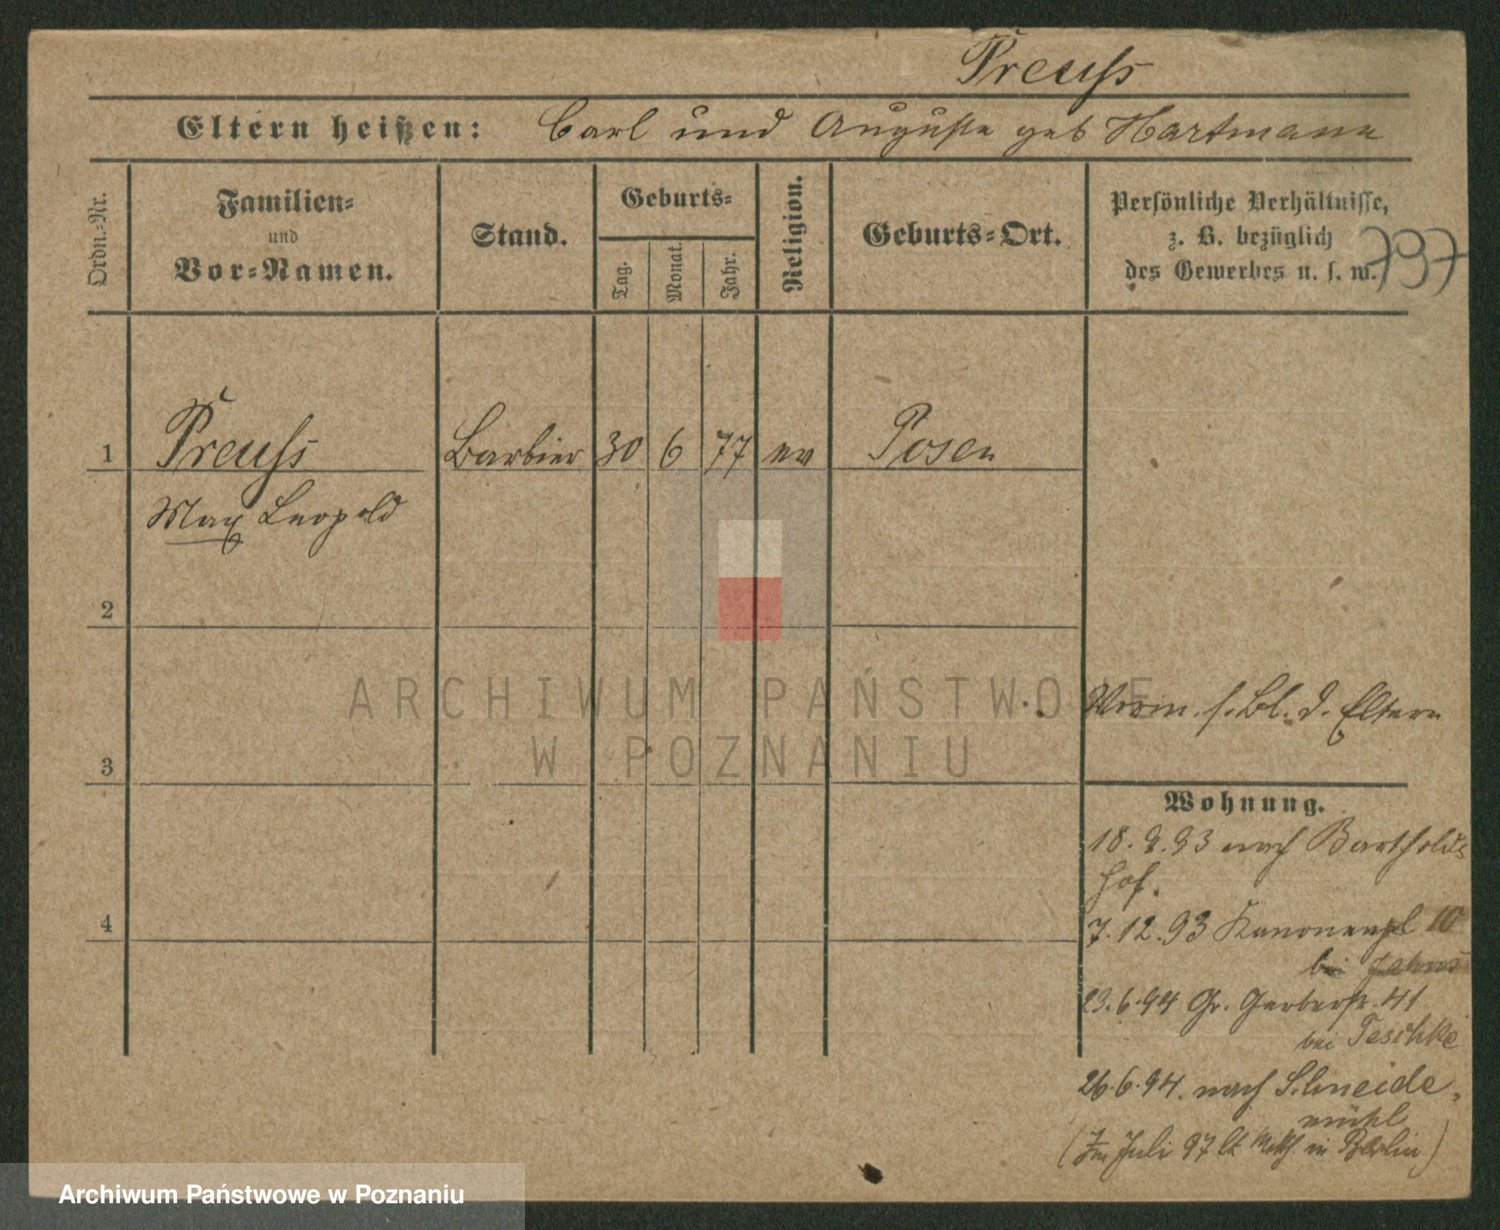 Preuſs
Eltern heißen: Carl und Auguste geb Hartmann
Ordn.-Nr.
Familien-
und
Vor-Namen.
Stand.
Geburts-
Tag.
Monat.
Jahr.
Religion.
Geburts-Ort.
Persönliche Verhältnisse,
z. B. bezüglich
des Gewerbes u. s. w.
797
1 Preuſs Barbier 30 6 77 ev Posen
Max Leopold
2
ARCHIWUM PAŃSTWOWE
W POZNANIU
3
4
Vorm. s. Bl. d. Eltern
Wohnung.
18. 9. 93 nach Bartholds
hof.
7. 12. 93 Kanonenpl 10
bei Jahns
23. 6. 94 Gr. Gerberstr. 41
bei Teschke
26. 6. 94. nach Schneide-
mühl
(Im Juli 97 lt in Berlin)
Archiwum Państwowe w Poznaniu